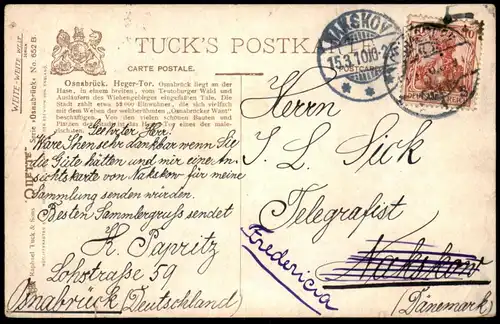 TUCK'S POSTKA
CARTE POSTALE.
Osnabrück. Heger-Tor. Osnabrück liegt an der
Hase, in einem breiten, vom Teutoburger Wald und
Ausläufern des Wiehengebirges eingefaßten Tale. Die
Stadt zählt etwa 52 000 Einwohner, die sich vielfach
mit dem Weben der weitberühmten „Osnabrücker Want"
beschäftigen. Von den vielen schönen Bauten und
Plätzen der ist das Heger-Tor eines der male-
rischsten.
WEISS-WEISS-WELT
Serie »Osnabrück« No. 652 B.
Raphael Tuck & Sons
NAKSKOV
15.3.10 6-
40
Geehrter Herr.
Wäre Ihnen sehr dankbar wenn Sie
die Güte hätten und mir eine An-
sichtskarte von Nakskov für meine
Sammlung senden würden.
Besten Sammlergruss sendet
H. Papritz
Lohstraße 59
Osnabrück (Deutschland)
Herrn
J. L. Sick
Telegrafist
Nakskow
Fredericia
(Dänemark)